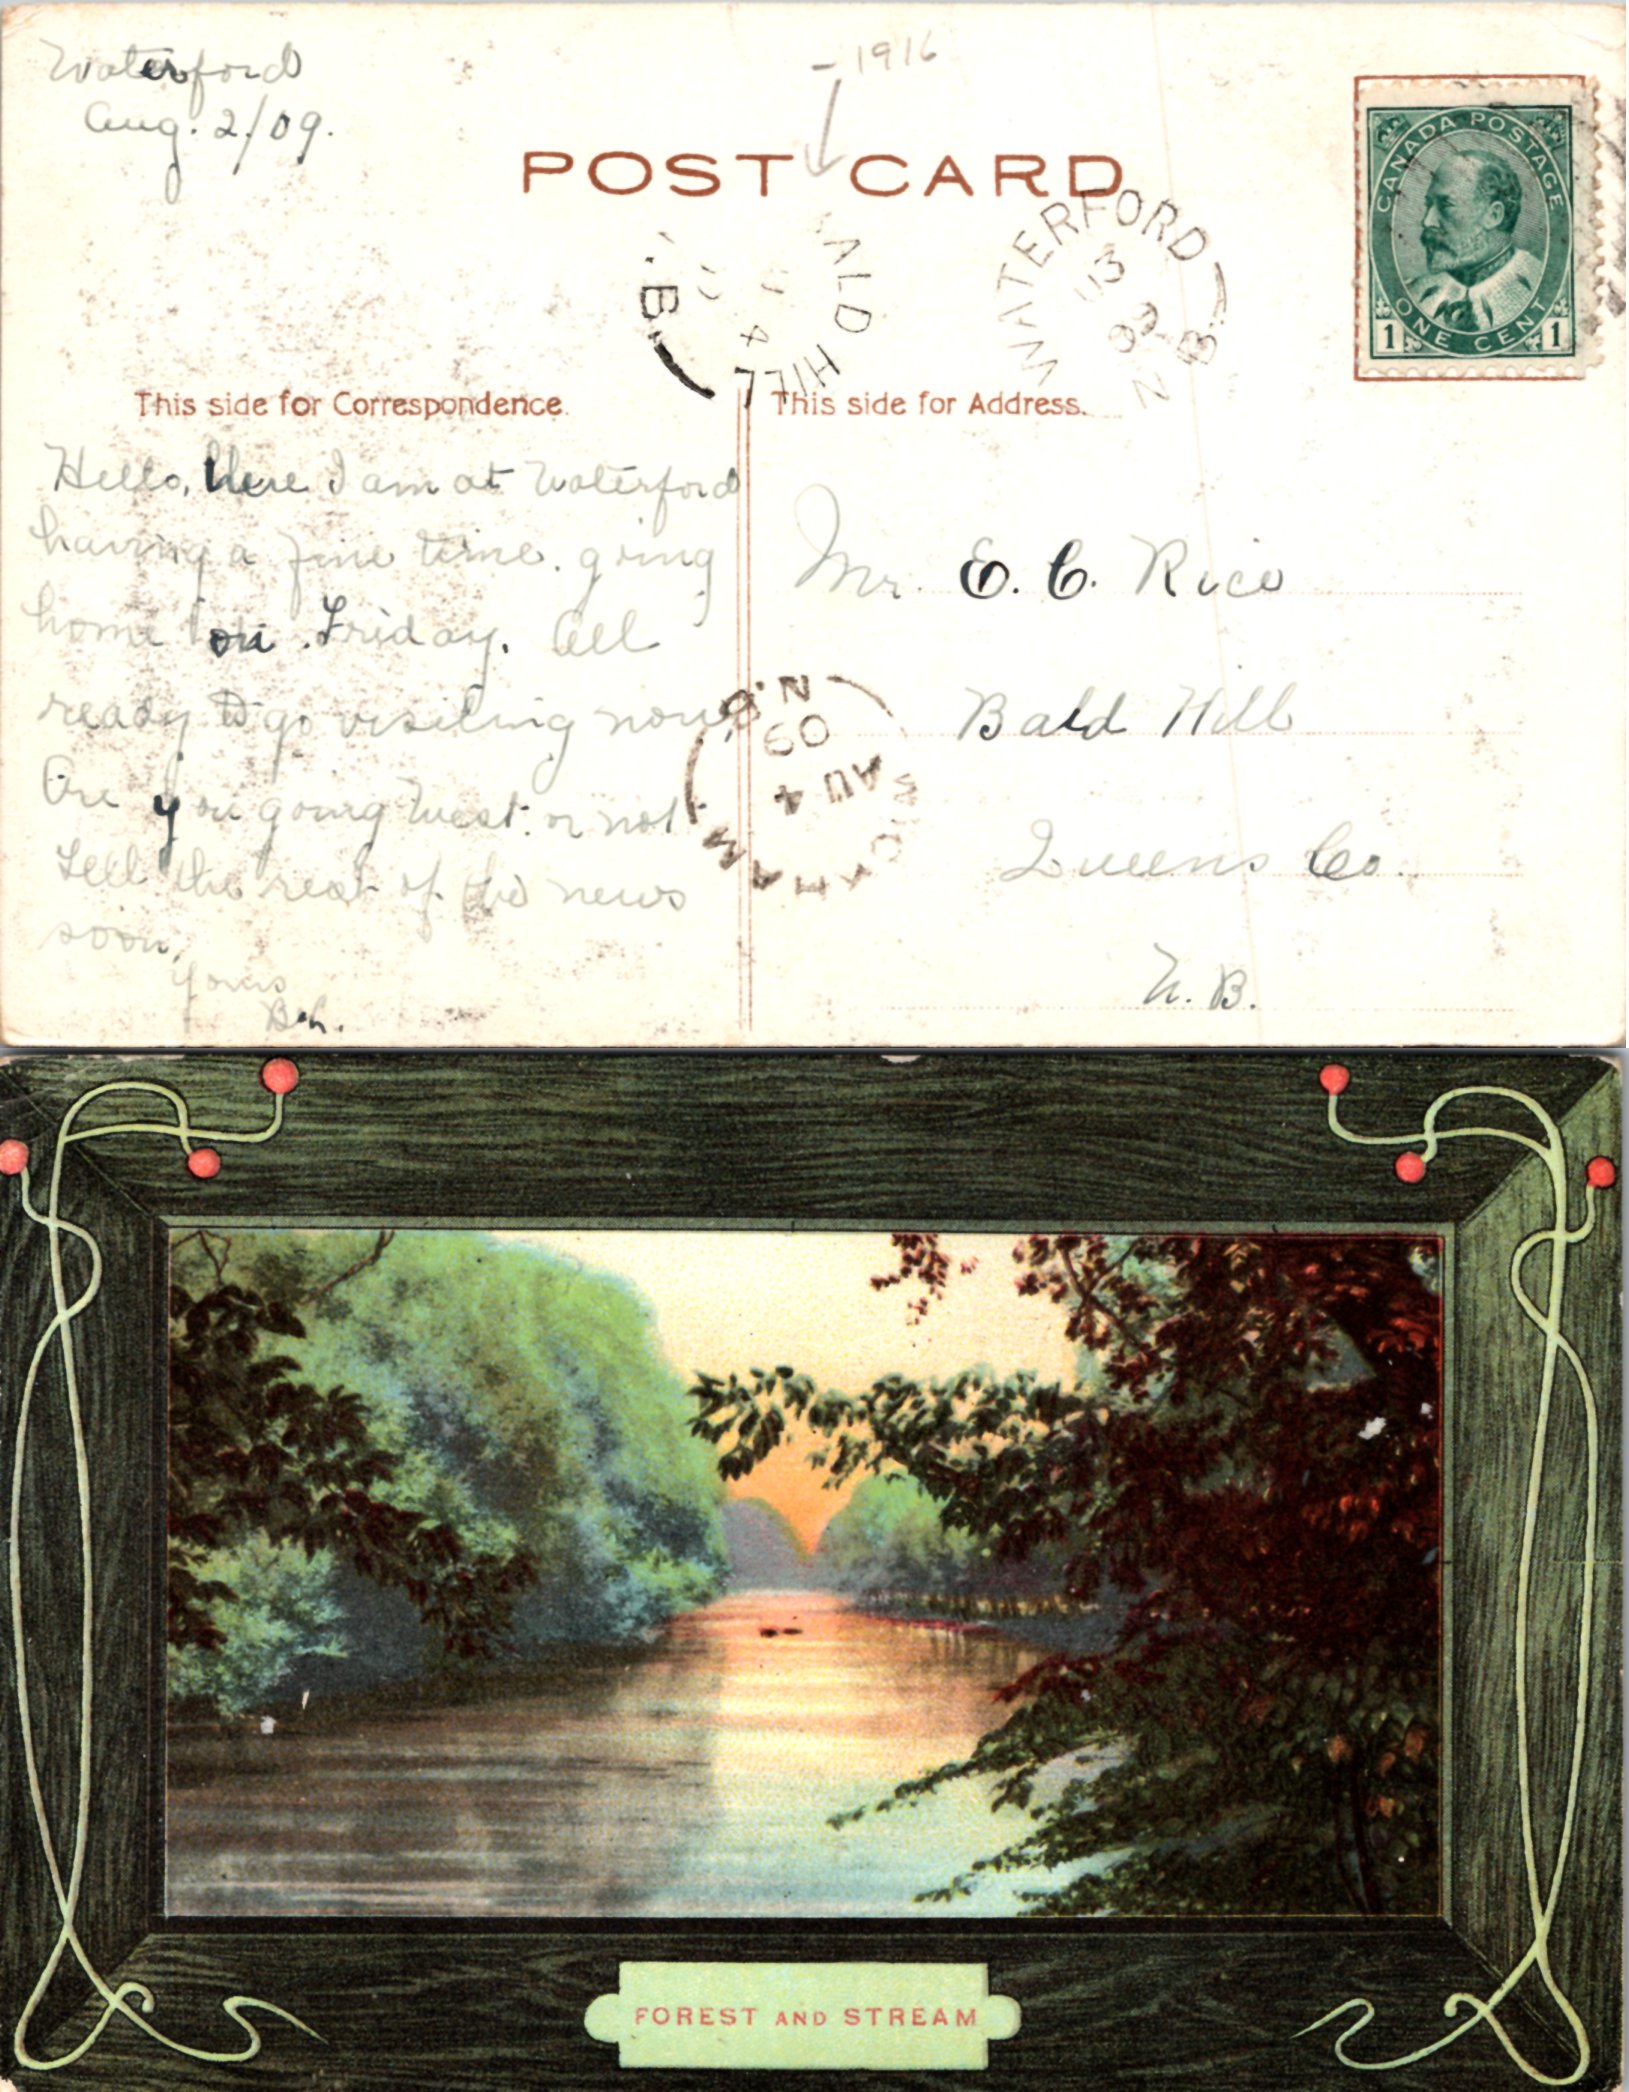 Waterford
Aug. 2/09.
- 1916
POST CARD
CANADA POSTAGE
ONE CENT
1 1
ALD HILL
.B.
4
WATERFORD
N.B.
3
09
This side for Correspondence.
This side for Address.
Hello, here I am at Waterford
having a fine time. going
home on Friday. All
ready to go visiting now.
Are you going West. or not
Tell the rest of the news
soon.
Yours
Mr. E. C. Rice
Bald Hill
Queens Co.
N. B.
WICKHAM
AU 4
09
N.B.
FOREST AND STREAM